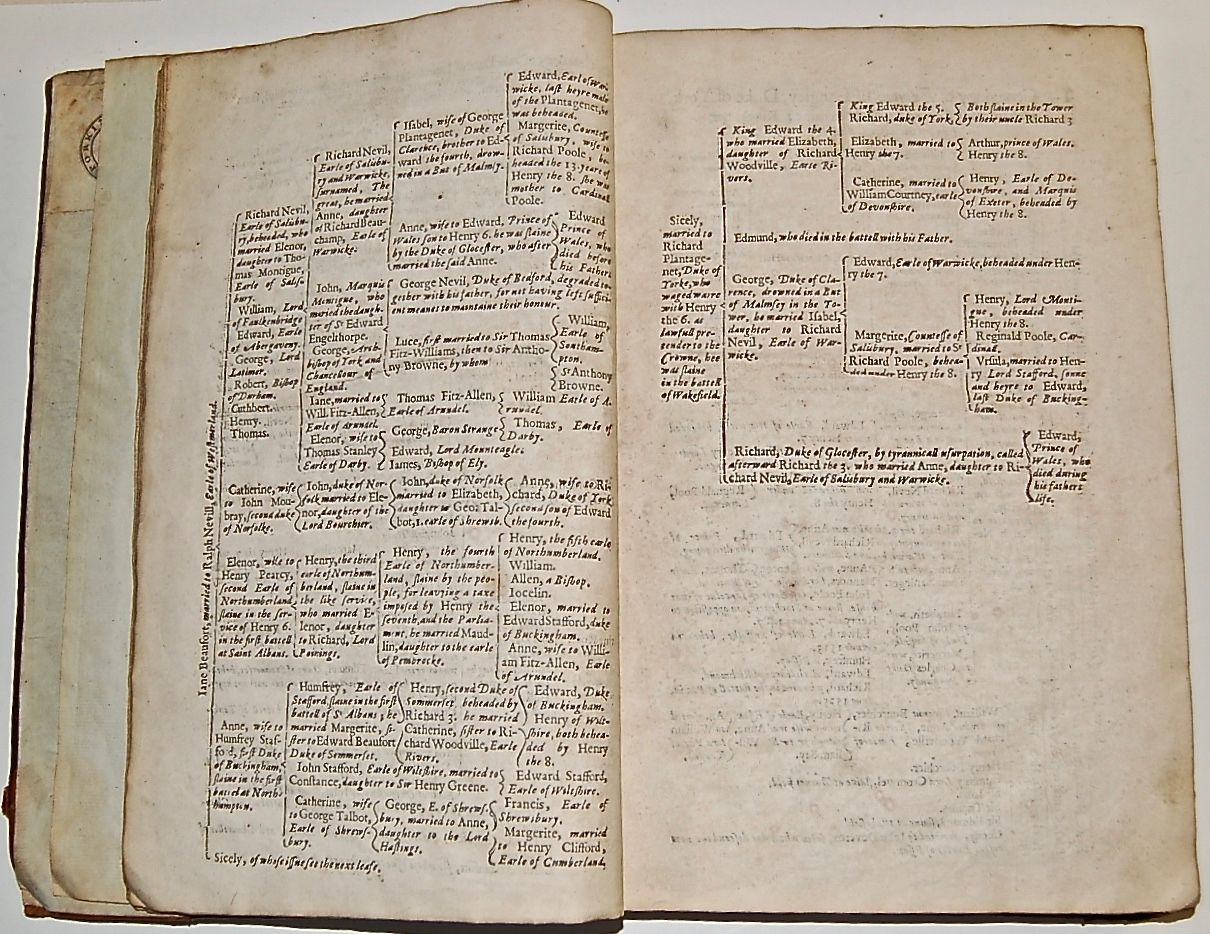 Iane Beaufort, married to Ralph Nevill, Earle of Westmerland.
Richard Nevil,
Earle of Salisbu-
ry, beheaded, who
married Elenor,
daughter to Tho-
mas Montigue,
Earle of Salis-
bury.
William, Lord
of Faulkenbridge
Edward, Earle
of Abergaveny.
George, Lord
Latimer.
Robert, Bishop
of Durham.
Cuthbert.
Henry.
Thomas.
Richard Nevil,
Earle of Salisbu-
ry and Warwicke,
surnamed, The
great, he married
Anne, daughter
of Richard Beau-
champ, Earle of
Warwicke.
Isabel, wife of George
Plantagenet, Duke of
Clarence, brother to Ed-
ward the fourth, drow-
ned in a But of Malmsy.
Edward, Earle of War-
wicke, last heyre male
of the Plantagenet, he
was beheaded.
Margerite, Countesse
of Salsbury, wife to
Richard Poole, be-
headed the 13. yeare of
Henry the 8. she was
mother to Cardinal
Poole.
Anne, wife to Edward, Prince of
Wales son to Henry 6. he was slaine
by the Duke of Glocester, who after
married the said Anne.
Edward
Prince of
Wales, who
died before
his Father.
Iohn, Marquis
Montigue, who
maried the daugh-
ter of Sr Edward
Engelthorpe.
George Nevil, Duke of Bedford, degraded to-
gether with his father, for not having left suffici-
ent meanes to maintaine their honour.
Luce, first married to Sir Thomas
Fitz-Williams, then to Sir Antho-
ny Browne, by whom
William,
Earle of
Southam-
pton.
Sr Anthony
Browne.
George, Arch-
bishop of York and
Chancellour of
England.
Iane, married to
Will. Fitz-Allen,
Earle of Arundel.
Thomas Fitz-Allen,
Earle of Arundel.
William Earle of A-
rundel.
Elenor, wife to
Thomas Stanley
Earle of Darby.
George, Baron Strange
Thomas, Earle of
Darby.
Edward, Lord Mounteagle.
Iames, Bishop of Ely.
Catherine, wife
to Iohn Mou-
bray, second duke
of Norfolke.
Iohn, duke of Nor-
folk married to Ele-
nor, daughter of the
Lord Bourchier.
Iohn, duke of Norfolk
married to Elizabeth,
daughter to Geor. Tal-
bot, 1. earle of shrewsb.
Anne, wife to Ri-
chard, Duke of York
second son of Edward
the fourth.
Elenor, wife to
Henry Pearcy,
second Earle of
Northumberland
slaine in the ser-
vice of Henry 6.
in the first battell
at Saint Albans.
Henry, the third
earle of Northum-
berland, slaine in
the like service,
who married E-
lenor, daughter
to Richard, Lord
Poinings.
Henry, the fourth
Earle of Northumber-
land, slaine by the peo-
ple, for leavying a taxe
imposed by Henry the
seventh, and the Parlia-
ment, he married Maud-
lin, daughter to the earle
of Pembrocke.
Henry, the fifth earle
of Northumberland.
William.
Allen, a Bishop.
Iocelin.
Elenor, married to
Edward Stafford, duke
of Buckingham.
Anne, wife to Willi-
am Fitz-Allen, Earle
of Arundel.
Anne, wife to
Humfrey Staf-
ford, first Duke
of Buckingham,
slaine in the first
battell at North-
hampton.
Humfrey, Earle of
Stafford, slaine in the first
battell of St Albans; he
married Margerite, si-
ster to Edward Beaufort
Duke of Sommerset.
Henry, second Duke of
Sommerset, beheaded by
Richard 3. he married
Catherine, sister to Ri-
chard Woodville, Earle
Rivers.
Edward, Duke
of Buckingham.
Henry of Wilt-
shire, both behea-
ded by Henry
the 8.
Iohn Stafford, Earle of Wilshire, married to
Constance, daughter to Sir Henry Greene.
Edward Stafford,
Earle of Wilshire.
Catherine, wife
to George Talbot,
Earle of Shrews-
bury.
George, E. of Shrews-
bury, married to Anne,
daughter to the Lord
Hastings.
Francis, Earle of
Shrewsbury.
Margerite, married
to Henry Clifford,
Earle of Cumberland,
Sicely, of whose issue see the next lease.
Sicely,
married to
Richard
Plantage-
net, Duke of
Yorke, who
waged warre
with Henry
the 6. as
lawfull pre-
tender to the
Crowne, hee
was slaine
in the battell
of Wakefield.
King Edward the 4.
who married Elizabeth,
daughter of Richard
Woodville, Earle Ri-
vers.
King Edward the 5.
Richard, duke of York,
Both slaine in the Tower
by their uncle Richard 3
Elizabeth, married to
Henry the 7.
Arthur, prince of Wales.
Henry the 8.
Catherine, married to
William Courtney, earle
of Devonshire.
Henry, Earle of De-
vonshire, and Marquis
of Exeter, beheaded by
Henry the 8.
Edmund, who died in the battell with his Father.
George, Duke of Cla-
rence, drowned in a But
of Malmsey in the To-
wer, he married Isabel,
daughter to Richard
Nevil, Earle of War-
wicke.
Edward, Earle of Warwicke, beheaded under Hen-
ry the 7.
Margerite, Countesse of
Salisbury, married to Sr
Richard Poole, behea-
ded under Henry the 8.
Henry, Lord Monti-
gue, beheaded under
Henry the 8.
Reginald Poole, Car-
dinal.
Vrsula, married to Hen-
ry Lord Stafford, sonne
and heyre to Edward,
last Duke of Bucking-
ham.
Richard, Duke of Glocester, by tyrannicall usurpation, called
afterward Richard the 3. who married Anne, daughter to Ri-
chard Nevil, Earle of Salisbury and Warwicke.
Edward,
Prince of
Wales, who
died during
his fathers
life.